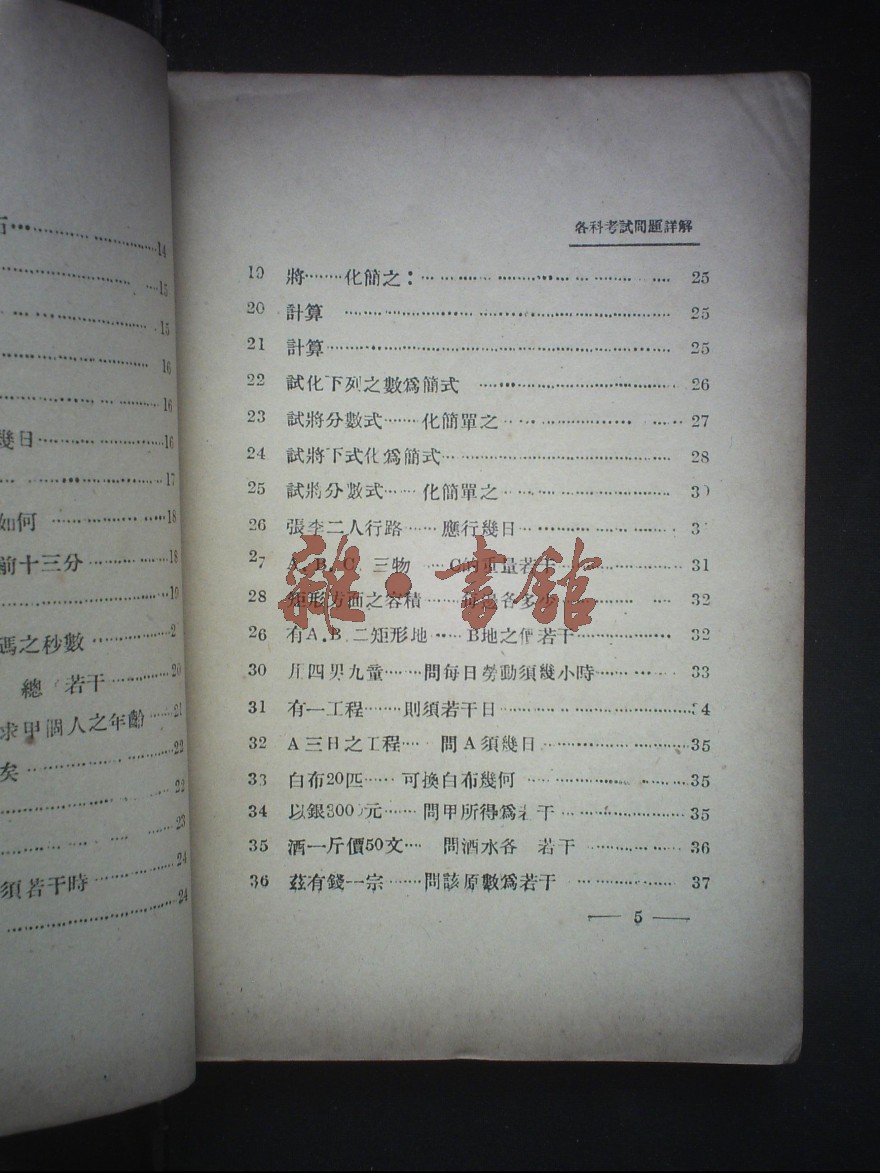 各科考試問題詳解
19 將……化簡之：…… 25
20 計算 …… 25
21 計算…… 25
22 試化下列之數爲簡式 …… 26
23 試將分數式……化簡單之…… 27
24 試將下式化爲簡式…… 28
25 試將分數式……化簡單之…… 30
26 張李二人行路……應行幾日…… 3
27 A,B,C,三物……C的重量若干…… 31
28 矩形方面之容積……每邊各多少…… 32
26 有A.B.二矩形地……B地之價若干…… 32
30 用四男九童……問每日勞動須幾小時…… 33
31 有一工程……則須若干日……34
32 A三日之工程…… 問A須幾日……35
33 白布20匹……可換白布幾何 ……35
34 以銀300元……問甲所得爲若干……35
35 酒一斤價50文…… 問酒水各 若干…… 36
36 茲有錢一宗……問該原數爲若干 …… 37
— 5 —
石…14
15
15
16
16
幾日……16
17
如何……18
前十三分……18
19
碼之秒數……2
總 若干……20
求甲個人之年齡……21
矣……22
22
23
須若干時 24
24
雜·書館